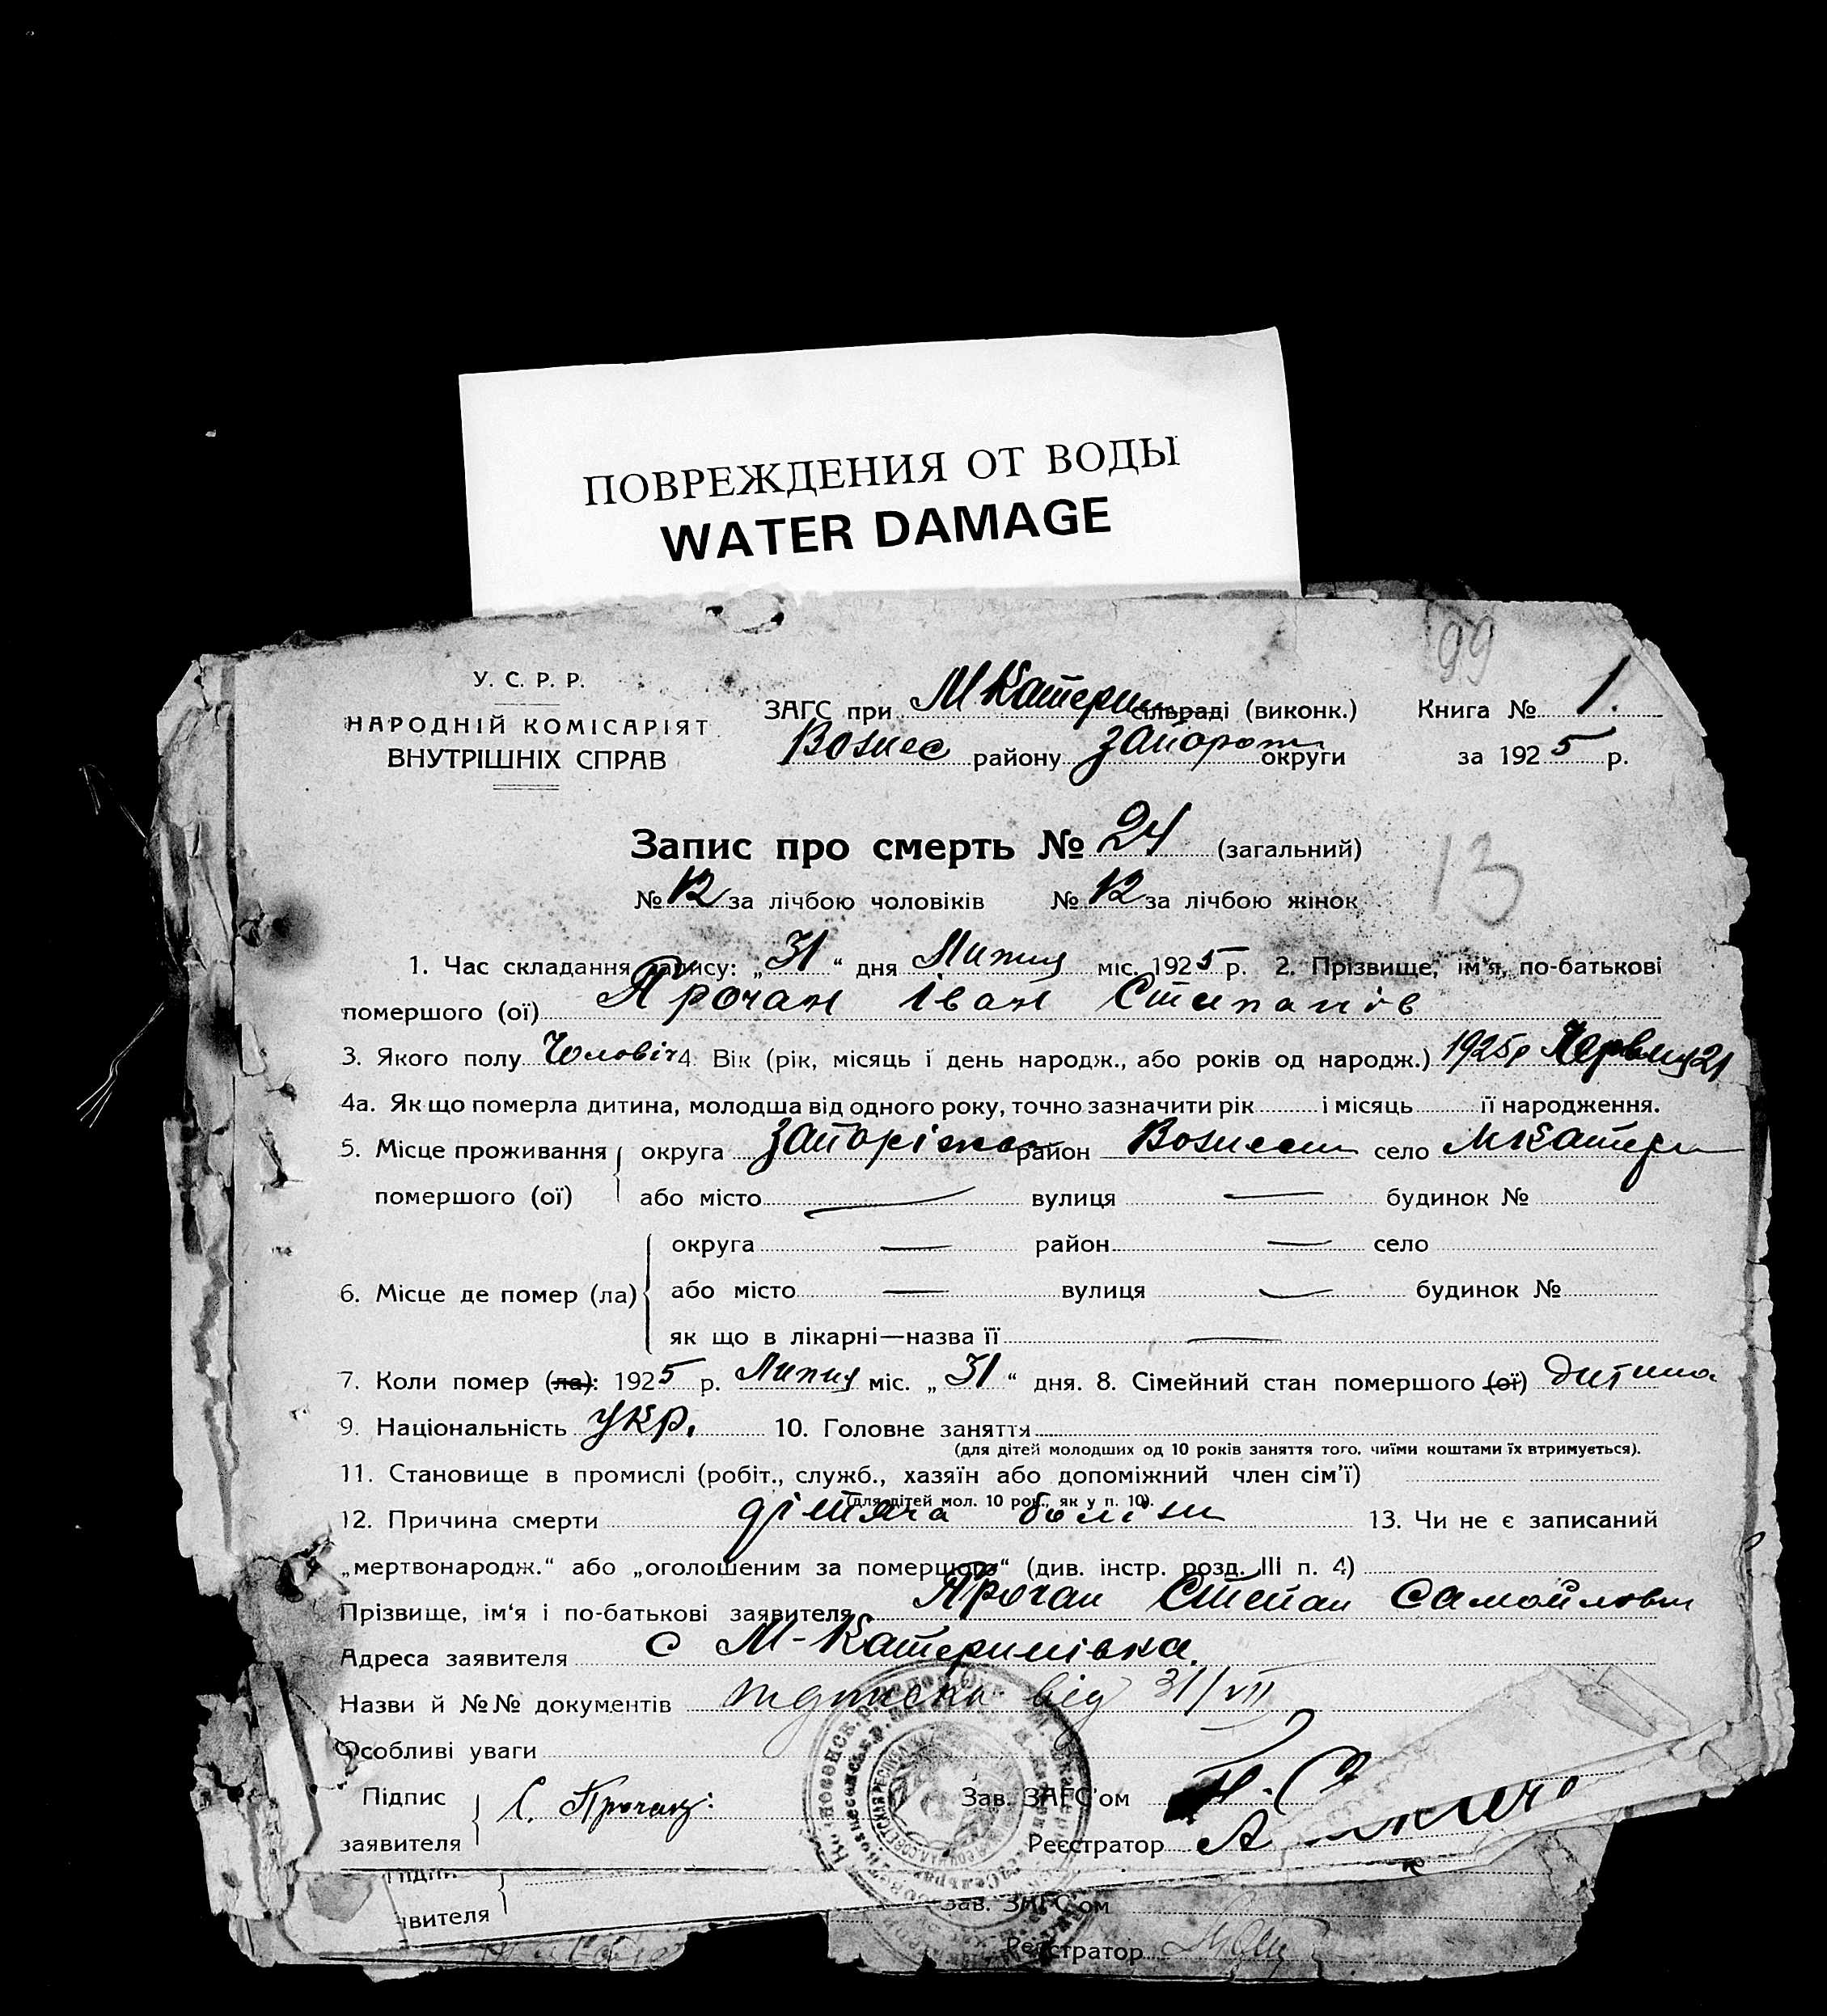 ПОВРЕЖДЕНИЯ ОТ ВОДЫ
WATER DAMAGE
99
У. С. Р. Р.
НАРОДНІЙ КОМІСАРІЯТ
ВНУТРІШНІХ СПРАВ
ЗАГС при М Катерин сільраді (виконк.) Книга № 1.
Вознес району Запорож округи за 1925 р.
Запис про смерть № 24 (загальний)
13
№ 12 за лічбою чоловіків № 12 за лічбою жінок
1. Час складання запису: „31“ дня Липня міс. 1925 р. 2. Прізвище, ім'я, по-батькові
помершого (ої) Прочан Іван Степанів
3. Якого полу Чоловіч 4. Вік (рік, місяць і день народж., або років од народж.) 1925р Червня 21
4а. Як що померла дитина, молодша від одного року, точно зазначити рік і місяць її народження.
5. Місце проживання помершого (ої) округа Запоріжжя район Вознесен село М Катери
або місто — вулиця — будинок №
6. Місце де помер (ла) округа — район — село
або місто — вулиця — будинок №
як що в лікарні—назва її —
7. Коли помер (ла): 1925 р. Липня міс. „31“ дня. 8. Сімейний стан помершого (ої) дитина
9. Національність укр. 10. Головне заняття
(для дітей молодших од 10 років заняття того, чиїми коштами їх втримується).
11. Становище в промислі (робіт., служб., хазяїн або допоміжний член сім'ї)
(для дітей мол. 10 рок., як у п. 10).
12. Причина смерти дітяча болізн 13. Чи не є записаний
„мертвонародж.“ або „оголошеним за помершого“ (див. інстр. розд. III п. 4)
Прізвище, ім'я і по-батькові заявителя Прочан Степан Самойлович
Адреса заявителя с М-Катеринівка.
Назви й №№ документів підписка від 31/VII
Особливі уваги
Підпис заявителя С. Прочан: Зав. ЗАГС'ом
Реєстратор
явителя
Зав. ЗАГС'ом
Реєстратор